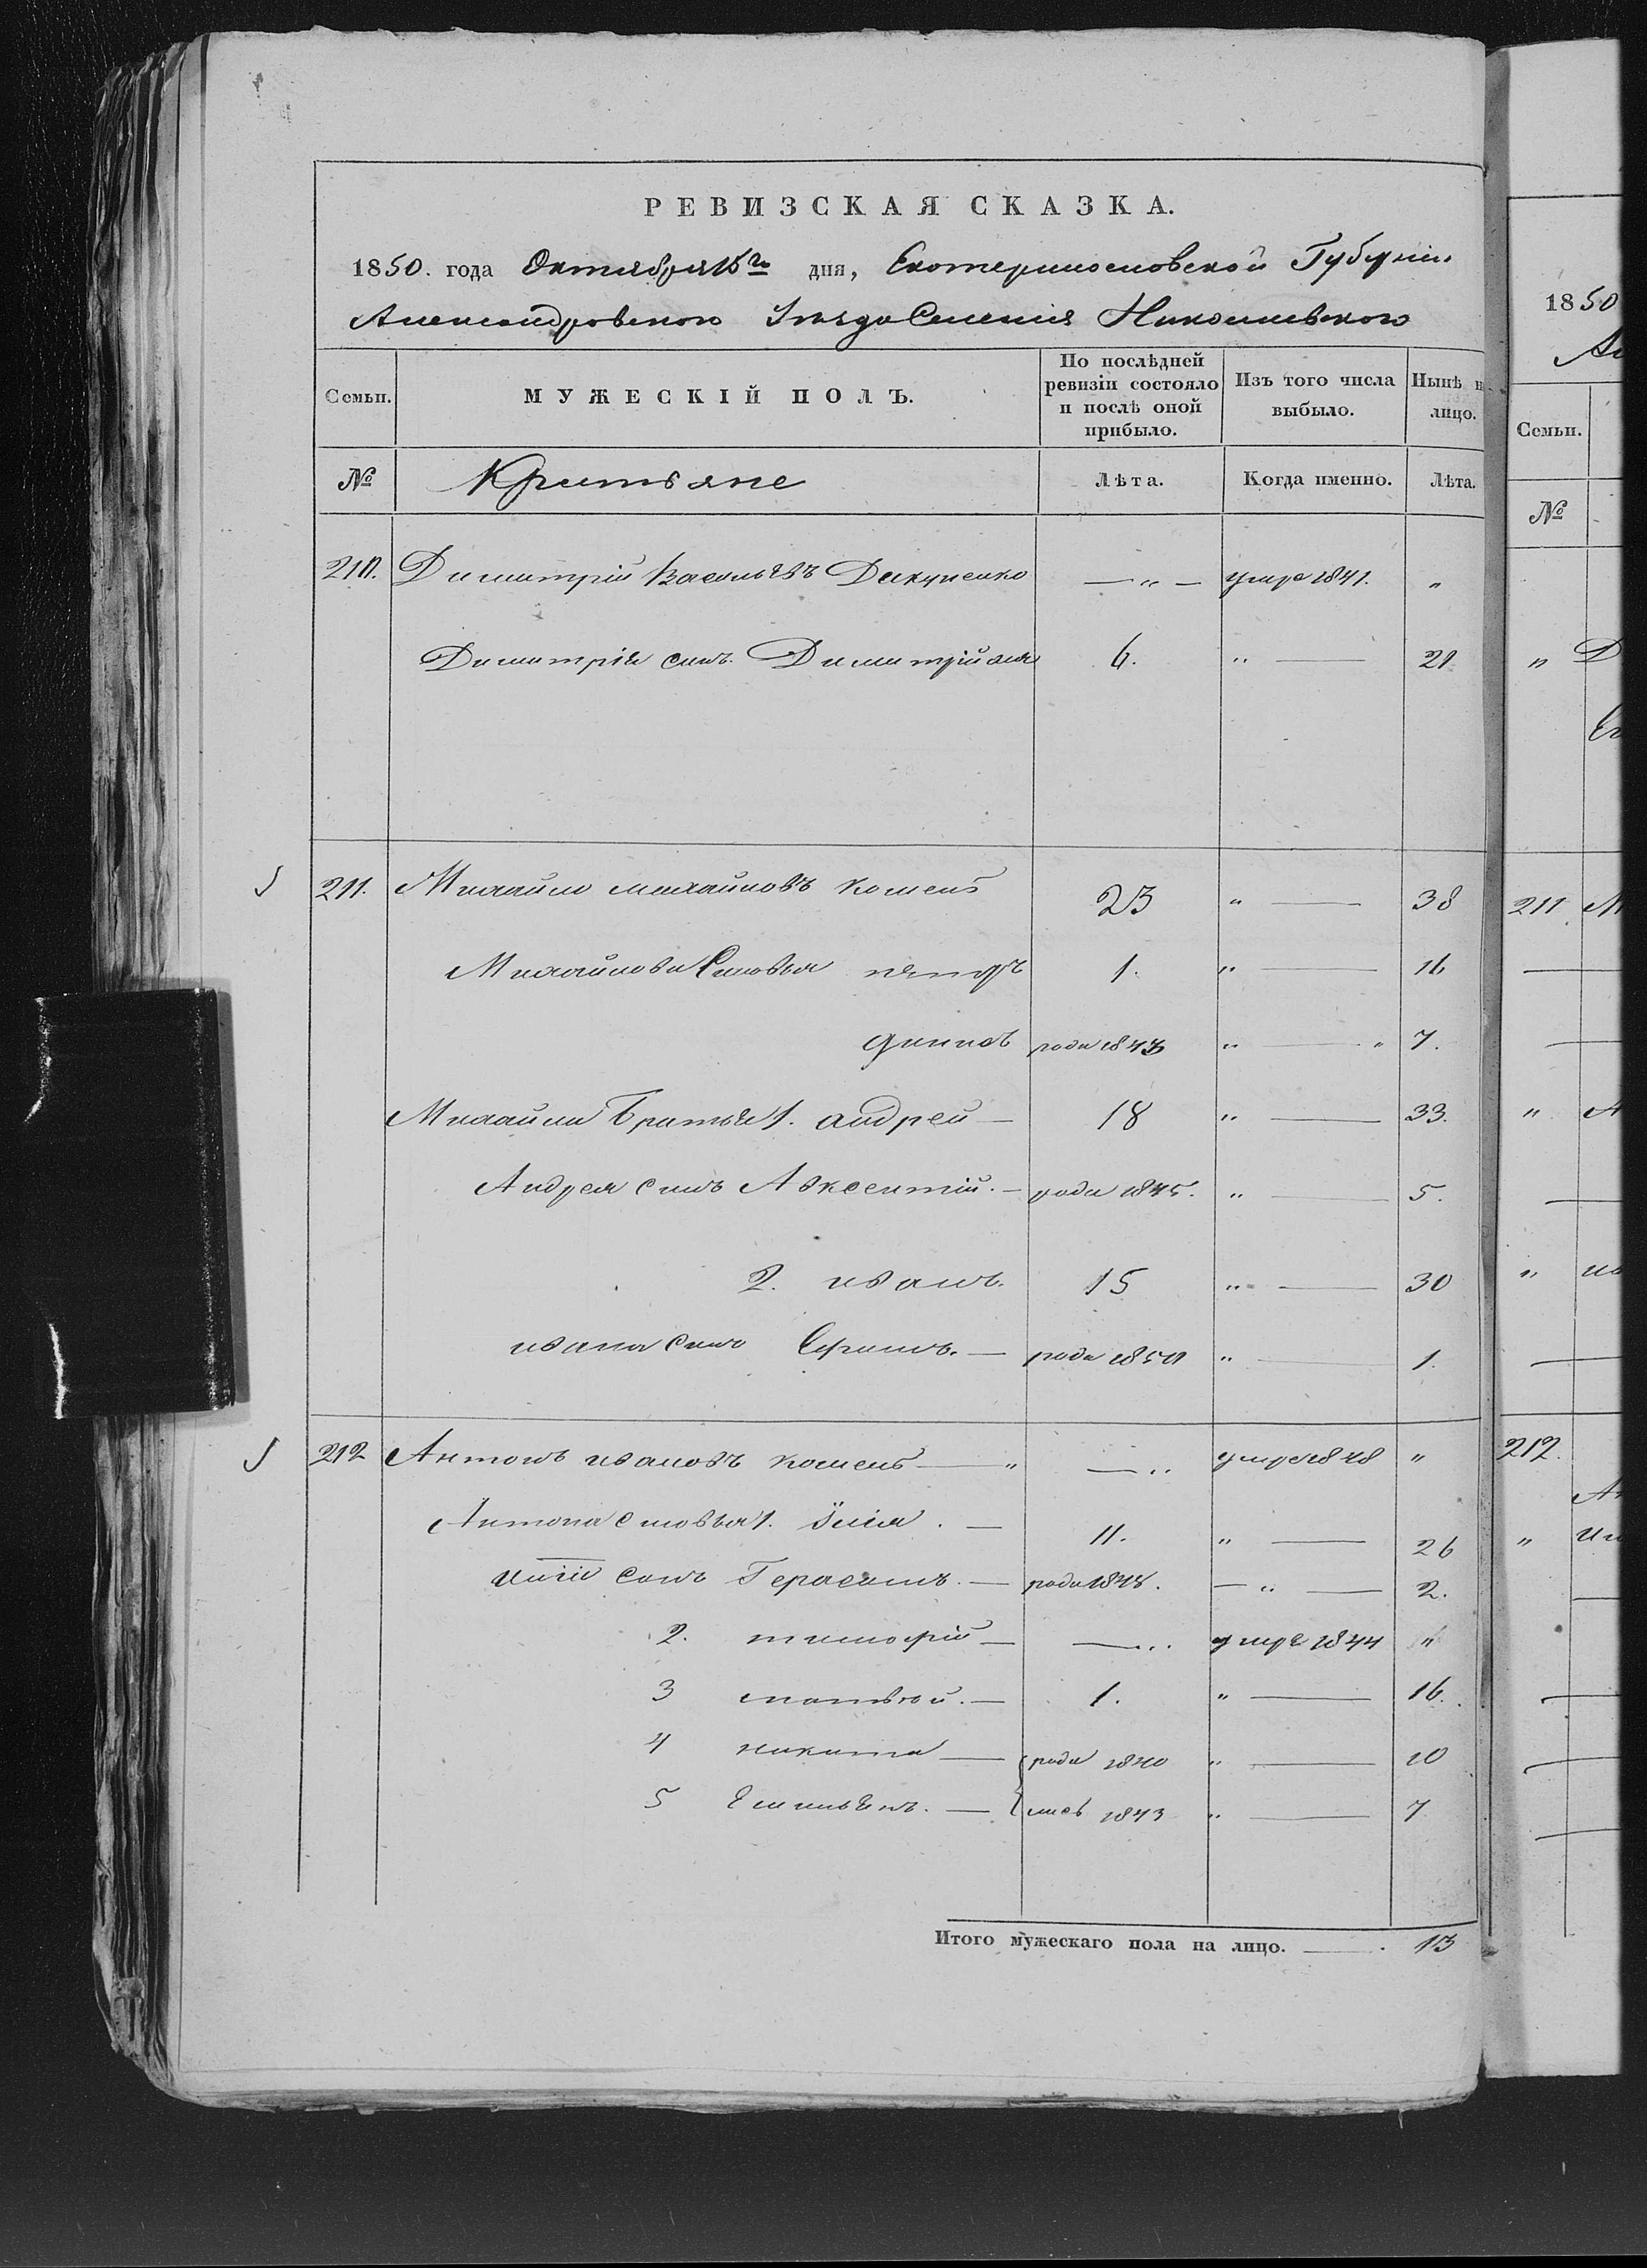 РЕВИЗСКАЯ СКАЗКА.
1850. года Октября 15го дня, Екотеринославской Губерніи
Александровского Уезда Селенія Николаевского
Семьи. МУЖЕСКІЙ ПОЛЪ. По послѣдней ревизіи состояло и послѣ оной прибыло. Изъ того числа выбыло. Нынѣ н лицо.
№ Лѣта. Когда именно. Лѣта.
210. Димитрій Васильевъ — " — умре 1841. "
Димитрія сынъ. 6. " — 21
211. Михайло михайловъ комень 23 " — 38
Михайлови Сыновья петръ 1. " — 16
роди 1843 " — " 7.
Михайли Братья 1. андрей — 18 " — 33.
Андрея сынъ Авксентий. — роди 1845. " — 5.
2. иванъ. 15 " — 30
ивана сынъ — роди 1850 " — 1.
212 Антонъ ивановъ комень — " — " умре 1848 "
Антона сновья 1. — 11. " — 26
сынъ Герасимъ. — роди 1848. — " — 2.
2. тимофій — — " умре 1844 "
3 матвей. — 1. " — 16.
4 никита — роди 1840 " — 10
5 Емильянъ. — лись 1843 " — 7
Итого мужескаго пола на лицо. — . 13
1850
Семьи.
№
" Д
211 М
" А
" ив
212.
"